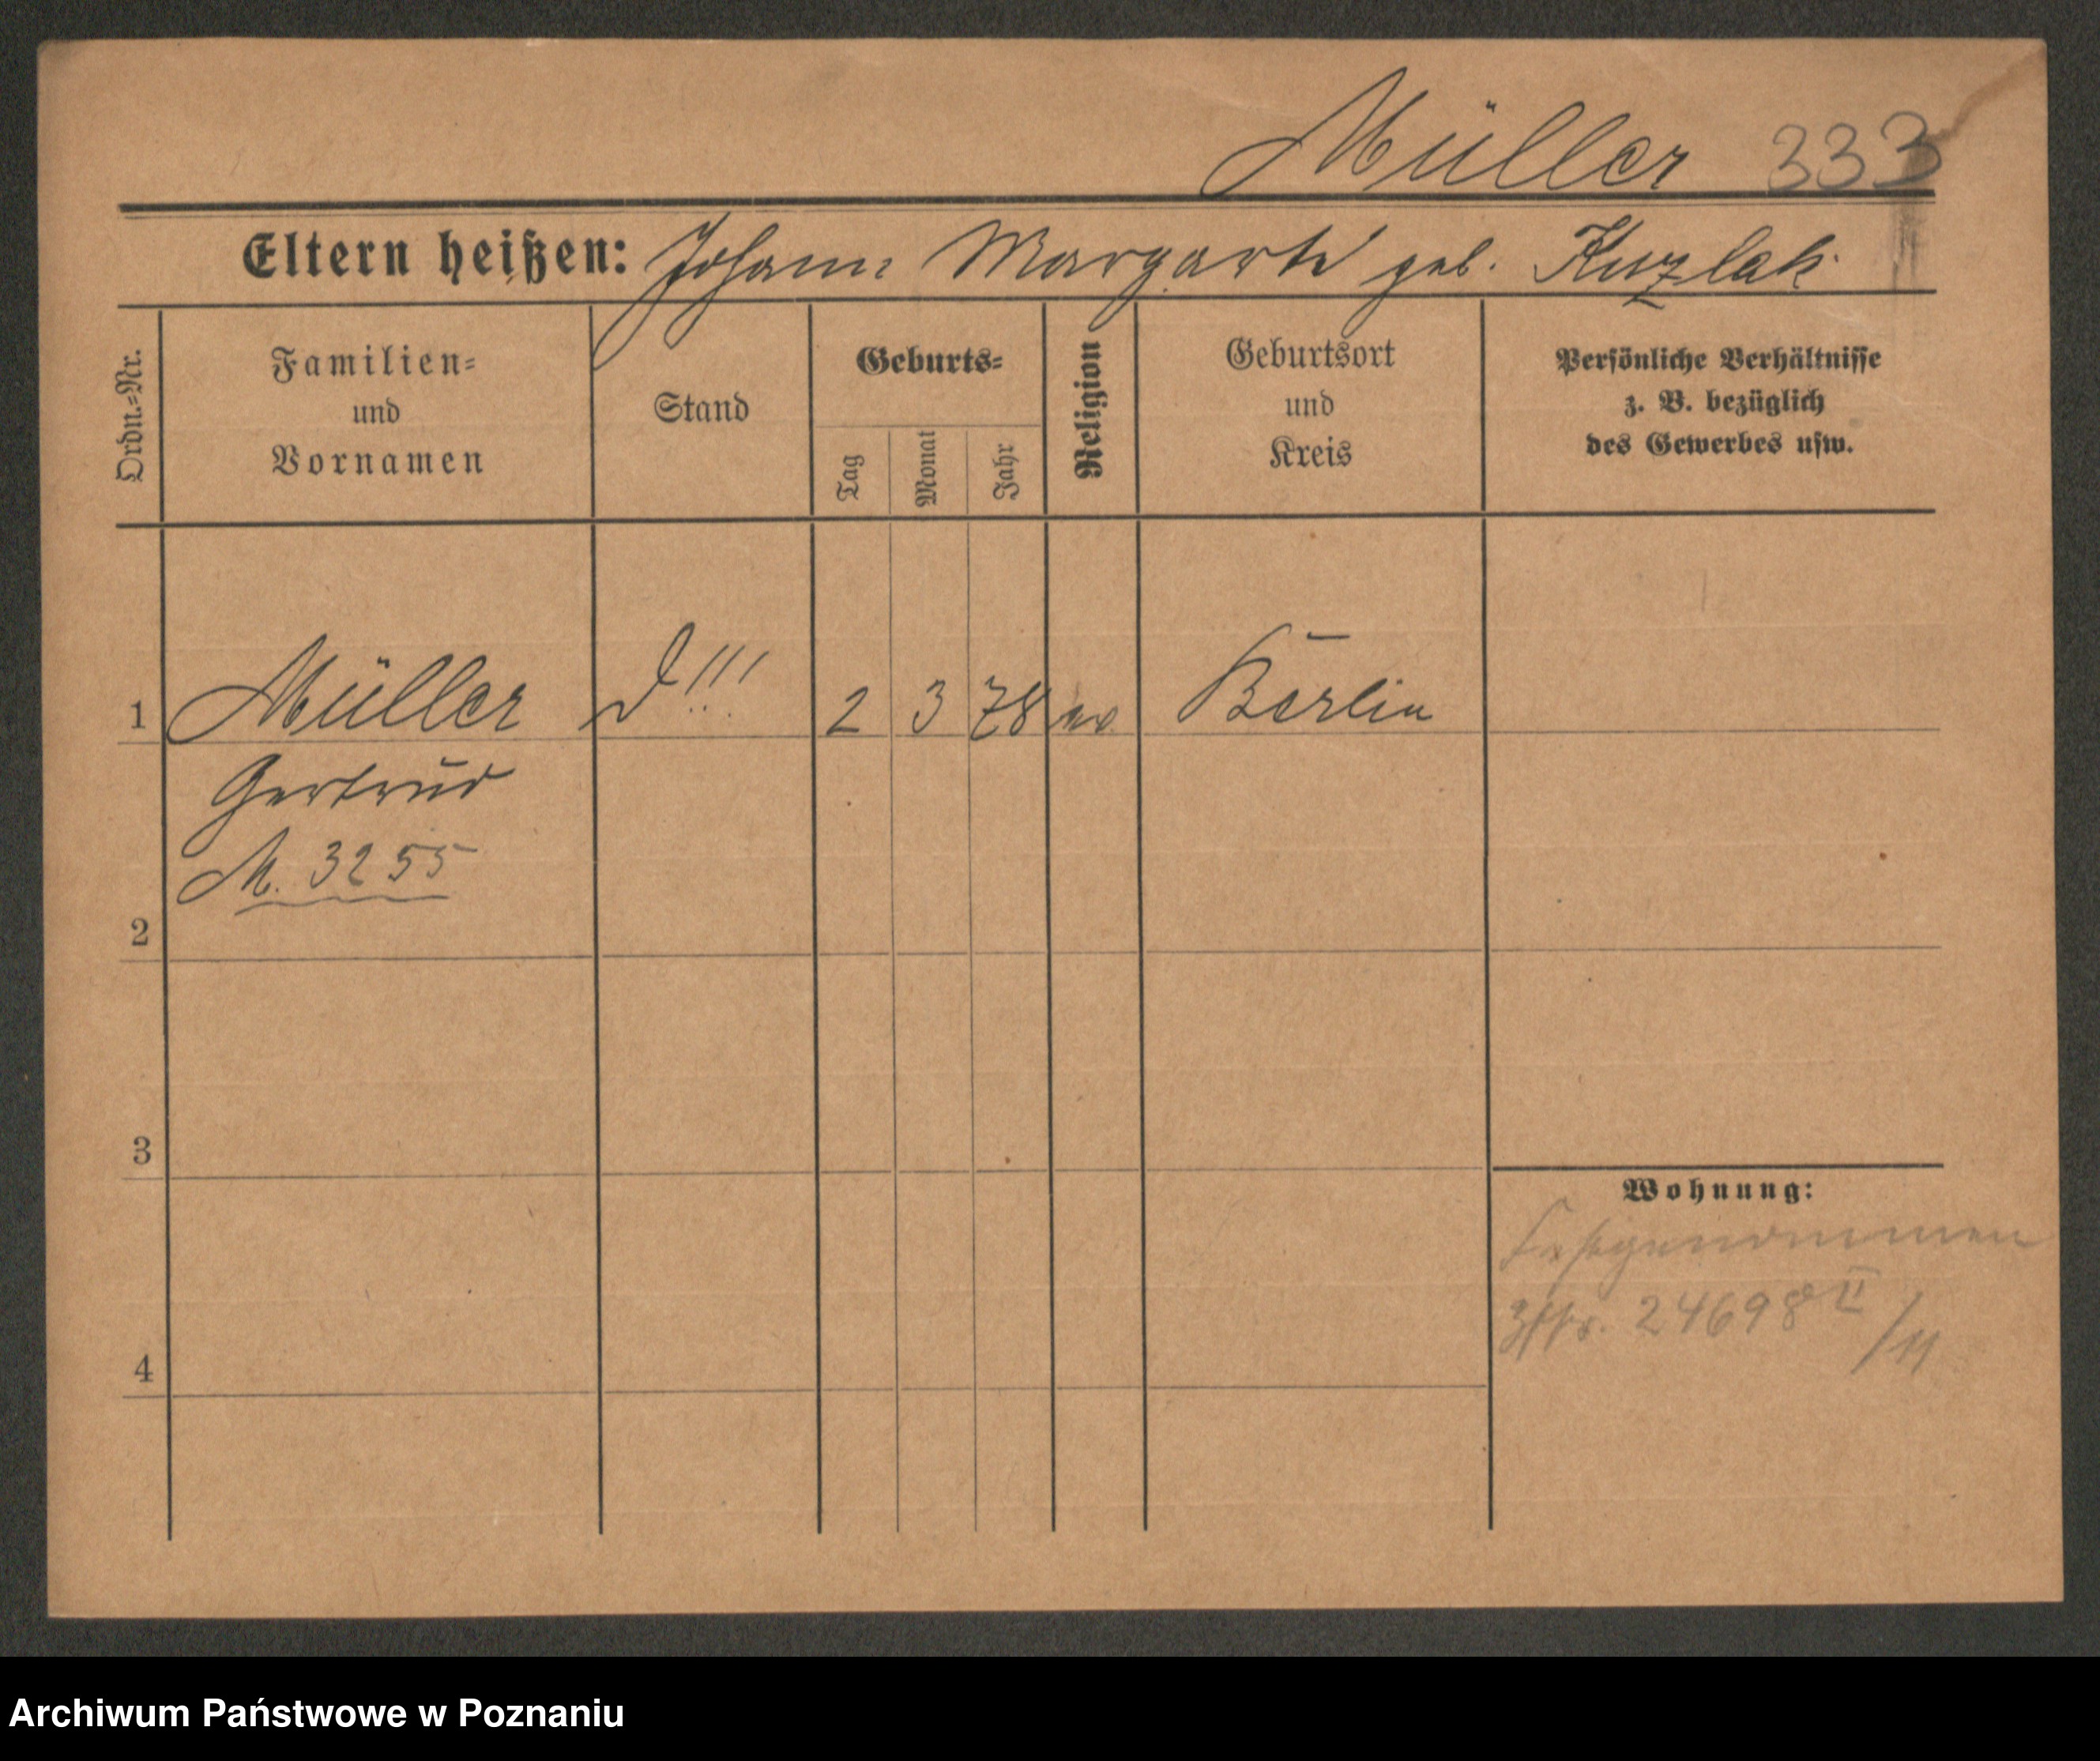 Müller 333
Eltern heißen: Johann Margarete geb. Kuzlak
Ordn.=Nr.
Familien=
und
Vornamen
Stand
Geburts=
Tag
Monat
Jahr
Religion
Geburtsort
und
Kreis
Persönliche Verhältnisse
z. B. bezüglich
des Gewerbes usw.
1 Müller D!!! 2 3 78 ev Berlin
Gertrud
M. 3255
2
3
Wohnung:
Festgenommen
24698 II/11
4
Archiwum Państwowe w Poznaniu